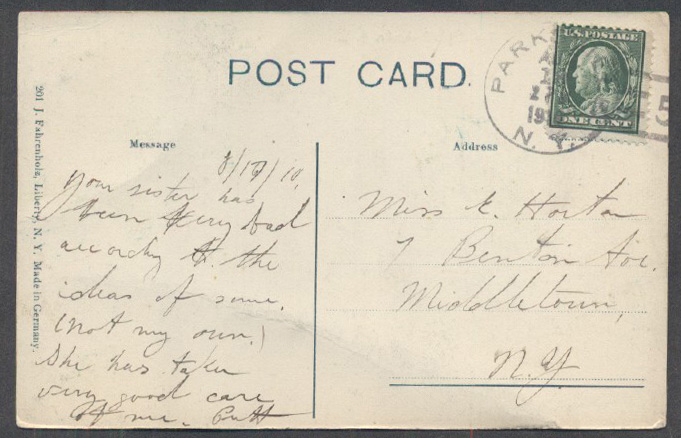 POST CARD.
PARK
N. Y.
19
U.S. POSTAGE
ONE CENT
5
201 J. Fahrenholz, Liberty, N. Y. Made in Germany.
Message
Address
8/17/10,
Your sister has
been very bad
according to the
ideas of some.
(not my own.)
She has taken
very good care
of me.
Miss E. Horton
7 Benton Ave.
Middletown,
N.Y.